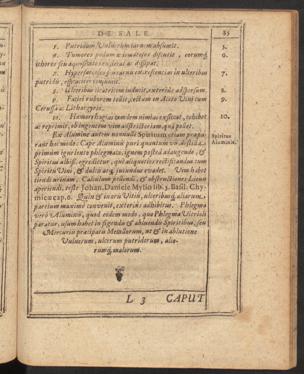 DE SALE. 85
5. Putridum Vulnerum carnem absumit. 5.
6. Tumores podum œdematosos discutit, eorumq́; 6.
ichores sui aquositates exsiccat & dissipat.
7. Hypersarcoses in carnu excrescentias in ulceribus 7.
putridis, efficaciter consumit.
8. Ulceribus cicatricem inducit, exterius adspersum. 8.
9. Faciei ruborem tollit, coctum in Aceto Vini cum 9.
Cerussa & Lithargyrio.
10. Hæmorrhagias tandem nimias exsiccat, cohibet 10.
ac reprimit, ob ingentem vim adstrictoriam, quâ pollet.
Ex Alumine autem nonnulli Spiritum etiam præpa- Spiritus
rant hoc modo: Cape Aluminis puri quantum vis, destilla Aluminis.
primùm igne lento phlegmata, ignem postea adaugendo, &
Spiritus albiss. egredietur, qui aliquoties rectificandus cum
Spiritu Vini, & dulcis atq; jucundus evadet. Vim habet
ciendi urinam, Calculum pellendi, & obstructiones Lienis
aperiendi, teste Johan. Daniele Mylio lib. 3. Basil. Chy-
micæ cap. 6. Quin & in oris Vitiis, ulceribusq́; aliarum,
partium maximè convenit, exterius adhibitus. Phlegma
verò Aluminis, quod eodem modo, quo Phlegma Vitrioli
paratur, usum habet in figendo & abluendis Spiritibus, seu
Mercuriis præcipuè Metallorum, ut & in ablutione
Vulnerum, ulcerum putridorum, alio-
rumq́; malorum.
L 3 CAPUT